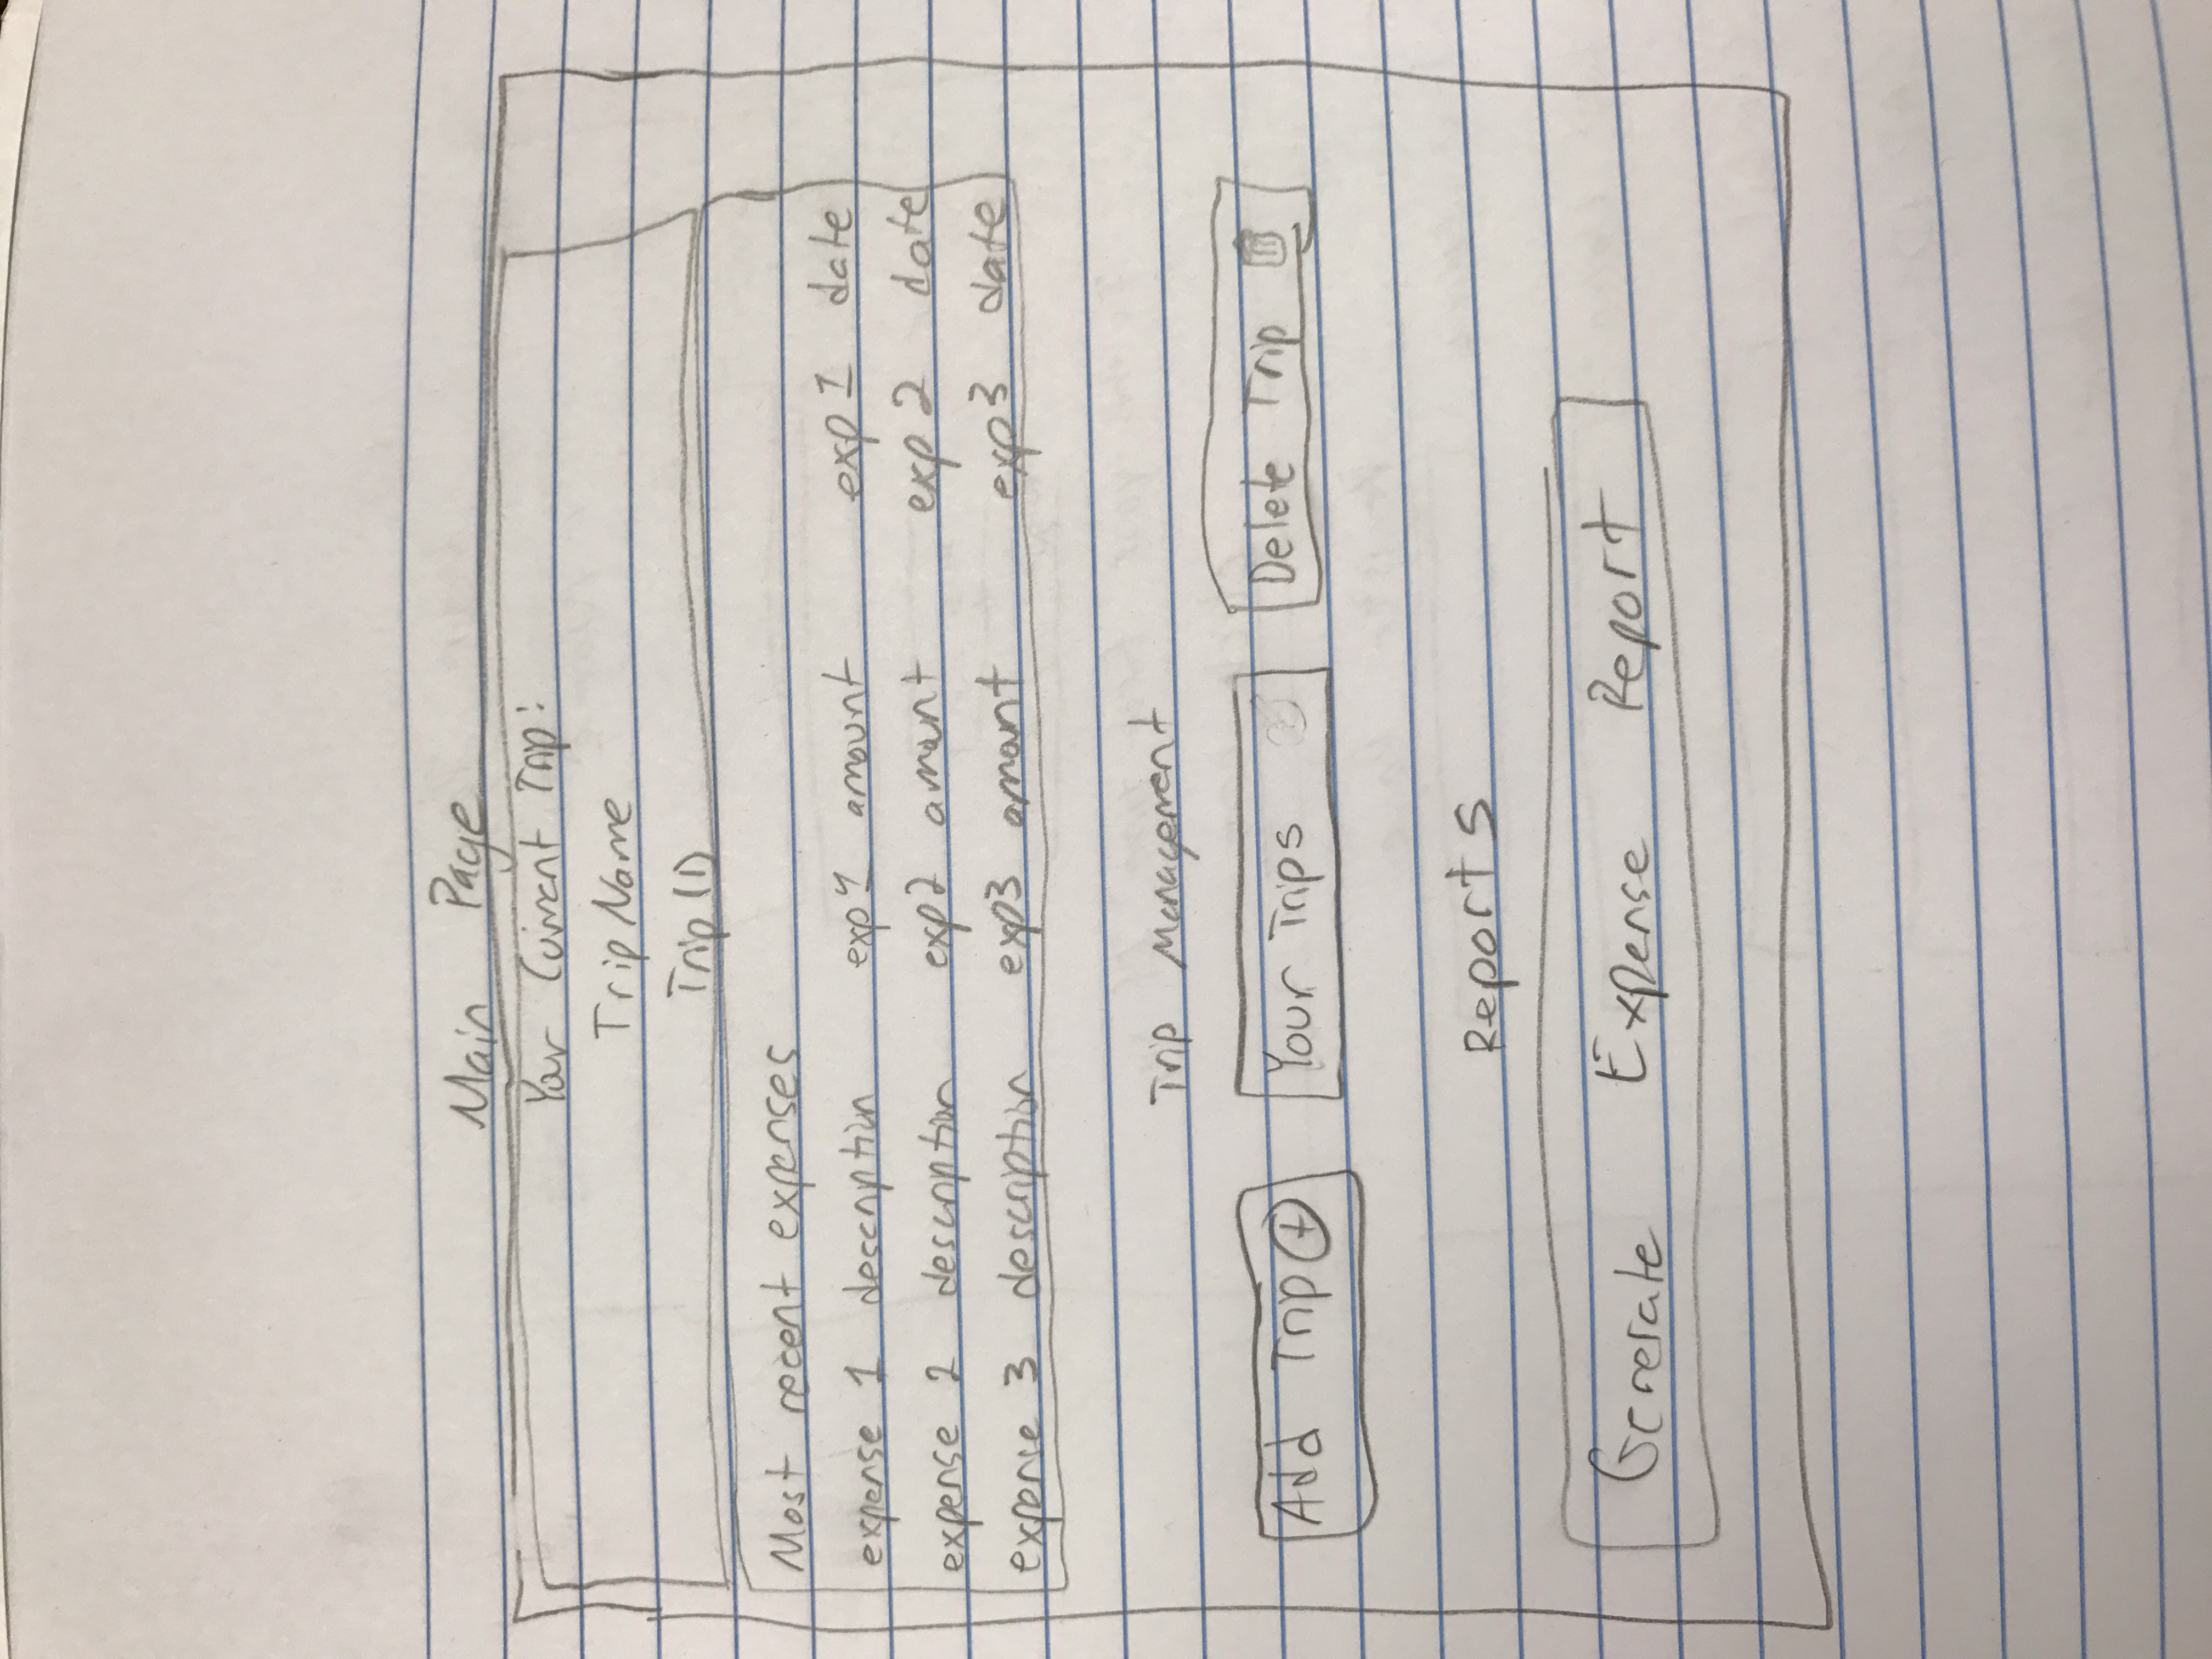 Main Page
Your Current Trip:
Trip Name
Trip ID
Most recent expenses
expense 1 description exp 1 amount exp 1 date
expense 2 description exp2 amount exp 2 date
expense 3 description exp3 amount exp3 date
Trip Management
Add Trip + Your Trips Delete Trip
Reports
Generate Expense Report